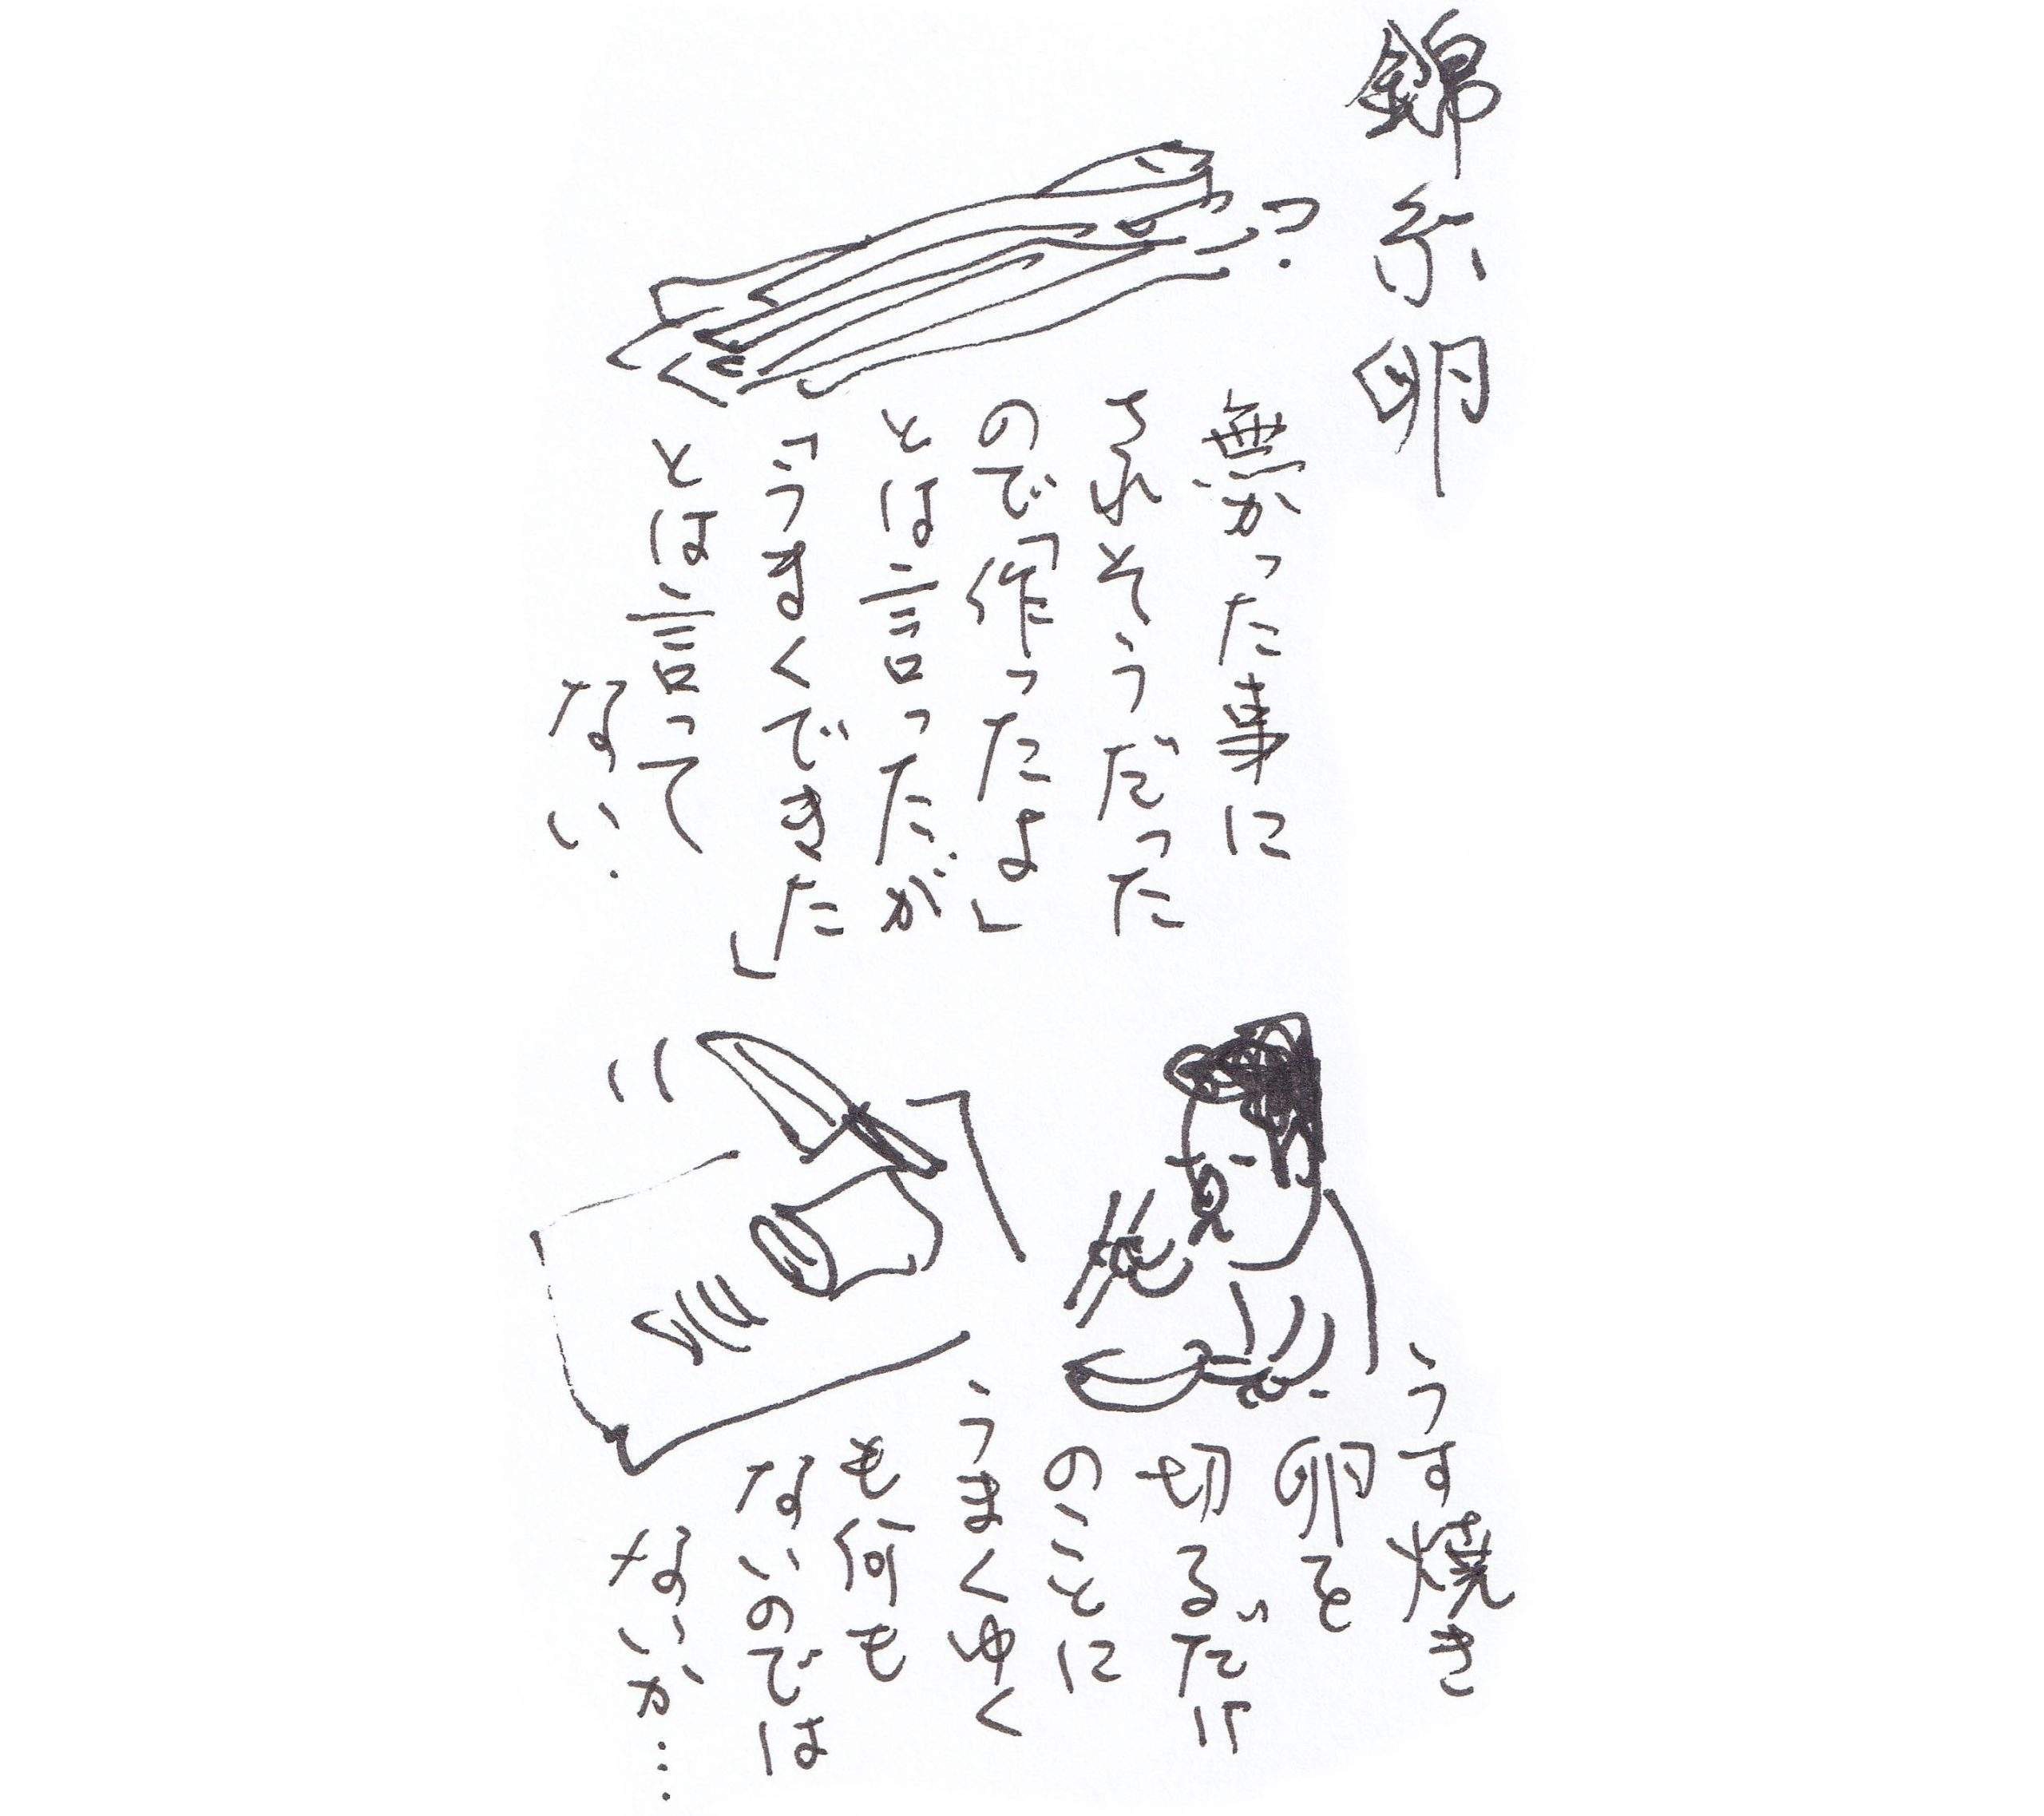 錦糸卵
?
無かった事に
されそうだった
ので「作ったよ」
とは言ったが
「うまくできた」
とは言って
ない.
うす焼き
卵を
切るだけ
のことに
うまくゆく
も何も
ないのでは
ないか…